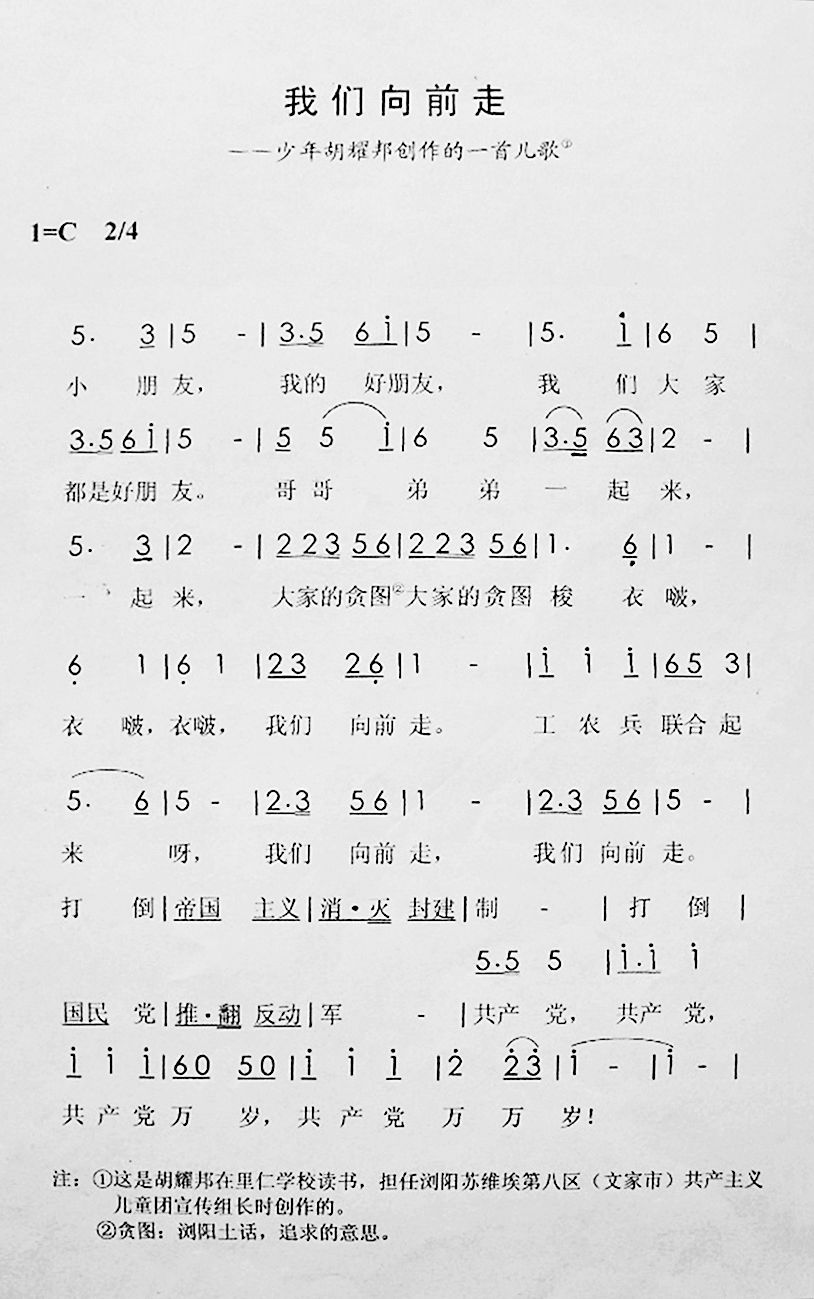 我们向前走
——少年胡耀邦创作的一首儿歌①
1=C 2/4
5. 3 | 5 - | 3.5 6 i | 5 - | 5. i | 6 5 |
小 朋 友， 我的 好朋友， 我 们 大 家
3.5 6 i | 5 - | 5 5 i | 6 5 | 3.5 6 3 | 2 - |
都是好朋 友。 哥 哥 弟 弟 一 起 来，
5. 3 | 2 - | 2 2 3 5 6 | 2 2 3 5 6 | 1. 6 | 1 - |
一 起 来， 大家的贪图②大家的贪图 梭 衣 啵，
6 1 | 6 1 | 2 3 2 6 | 1 - | i i i | 6 5 3 |
衣 啵，衣啵， 我们 向前 走。 工 农 兵 联合起
5. 6 | 5 - | 2.3 5 6 | 1 - | 2.3 5 6 | 5 - |
来 呀， 我们 向前 走， 我们 向前 走。
打 倒 | 帝国 主义 | 消·灭 封建 | 制 - | 打 倒 |
5.5 5 | i.i i
国民 党 | 推·翻 反动 | 军 - | 共产 党， 共产 党，
i i i | 6 0 5 0 | i i i | 2 2 3 | i - | i - |
共 产 党 万 岁，共 产 党 万 万 岁！
注：①这是胡耀邦在里仁学校读书，担任浏阳苏维埃第八区（文家市）共产主义
儿童团宣传组长时创作的。
②贪图：浏阳土话，追求的意思。